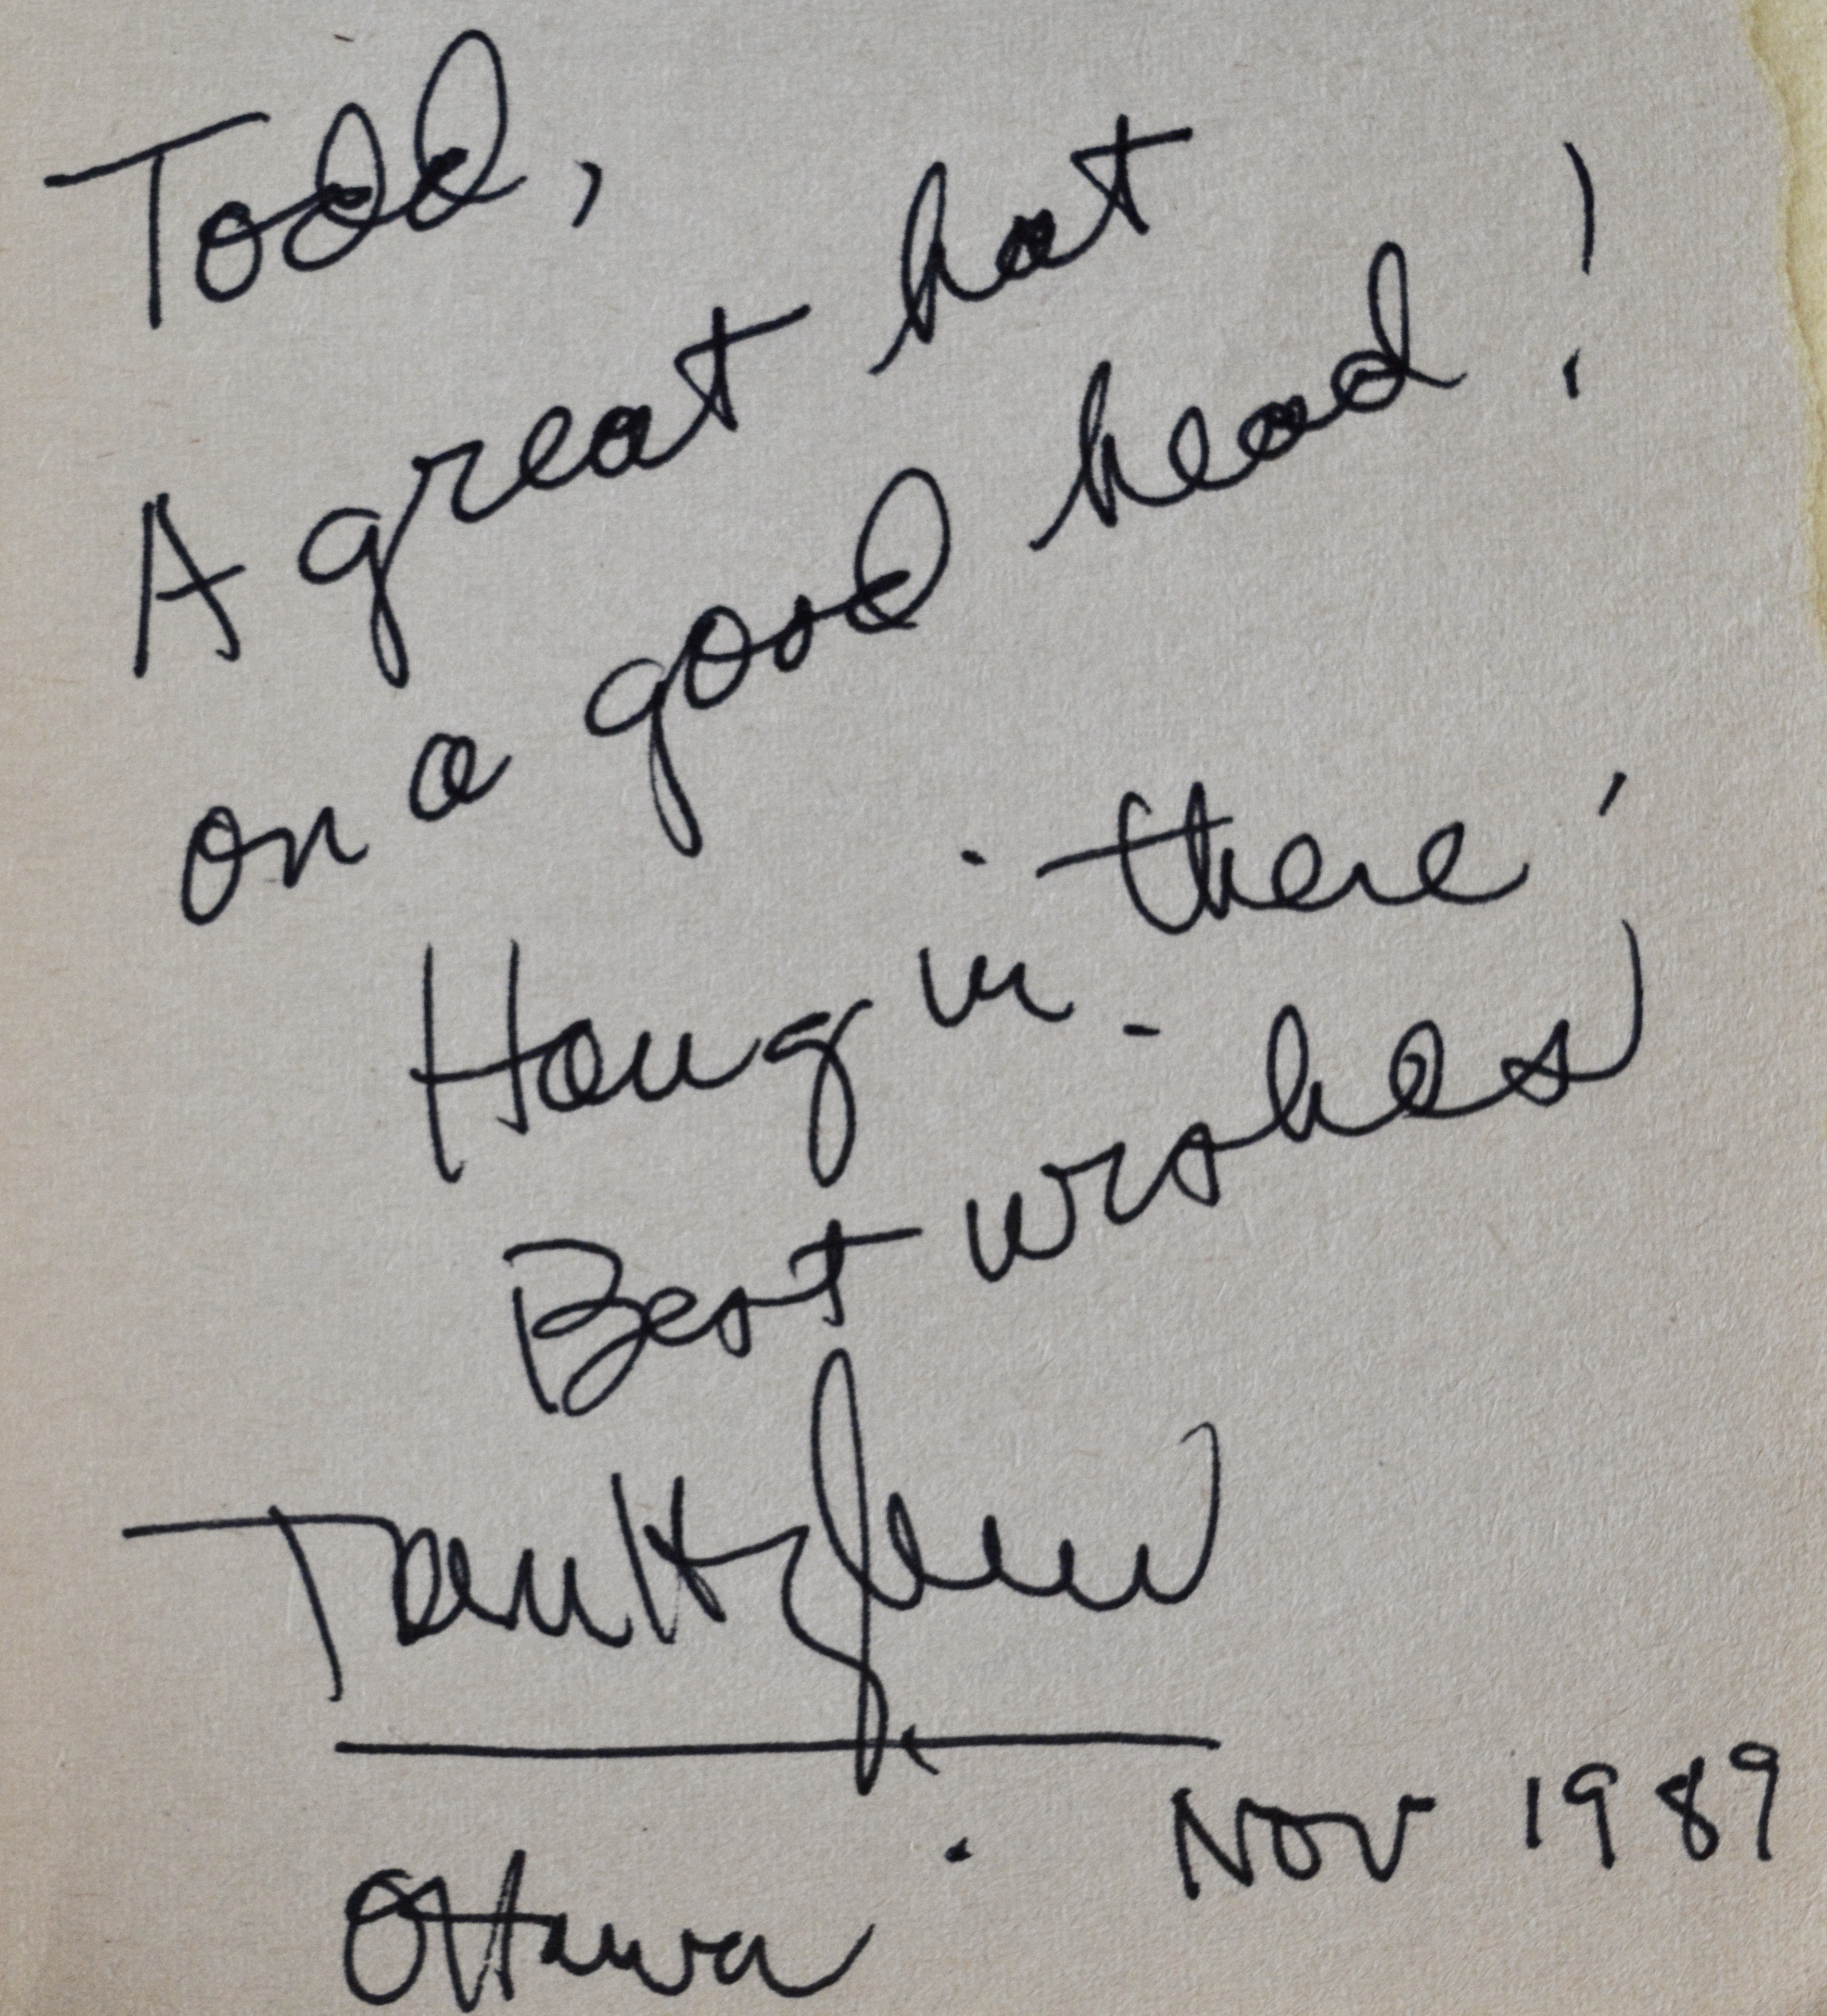 Todd,
A great hat
on a good head!
Hang in there!
Best wishes
Ottawa. Nov 1989